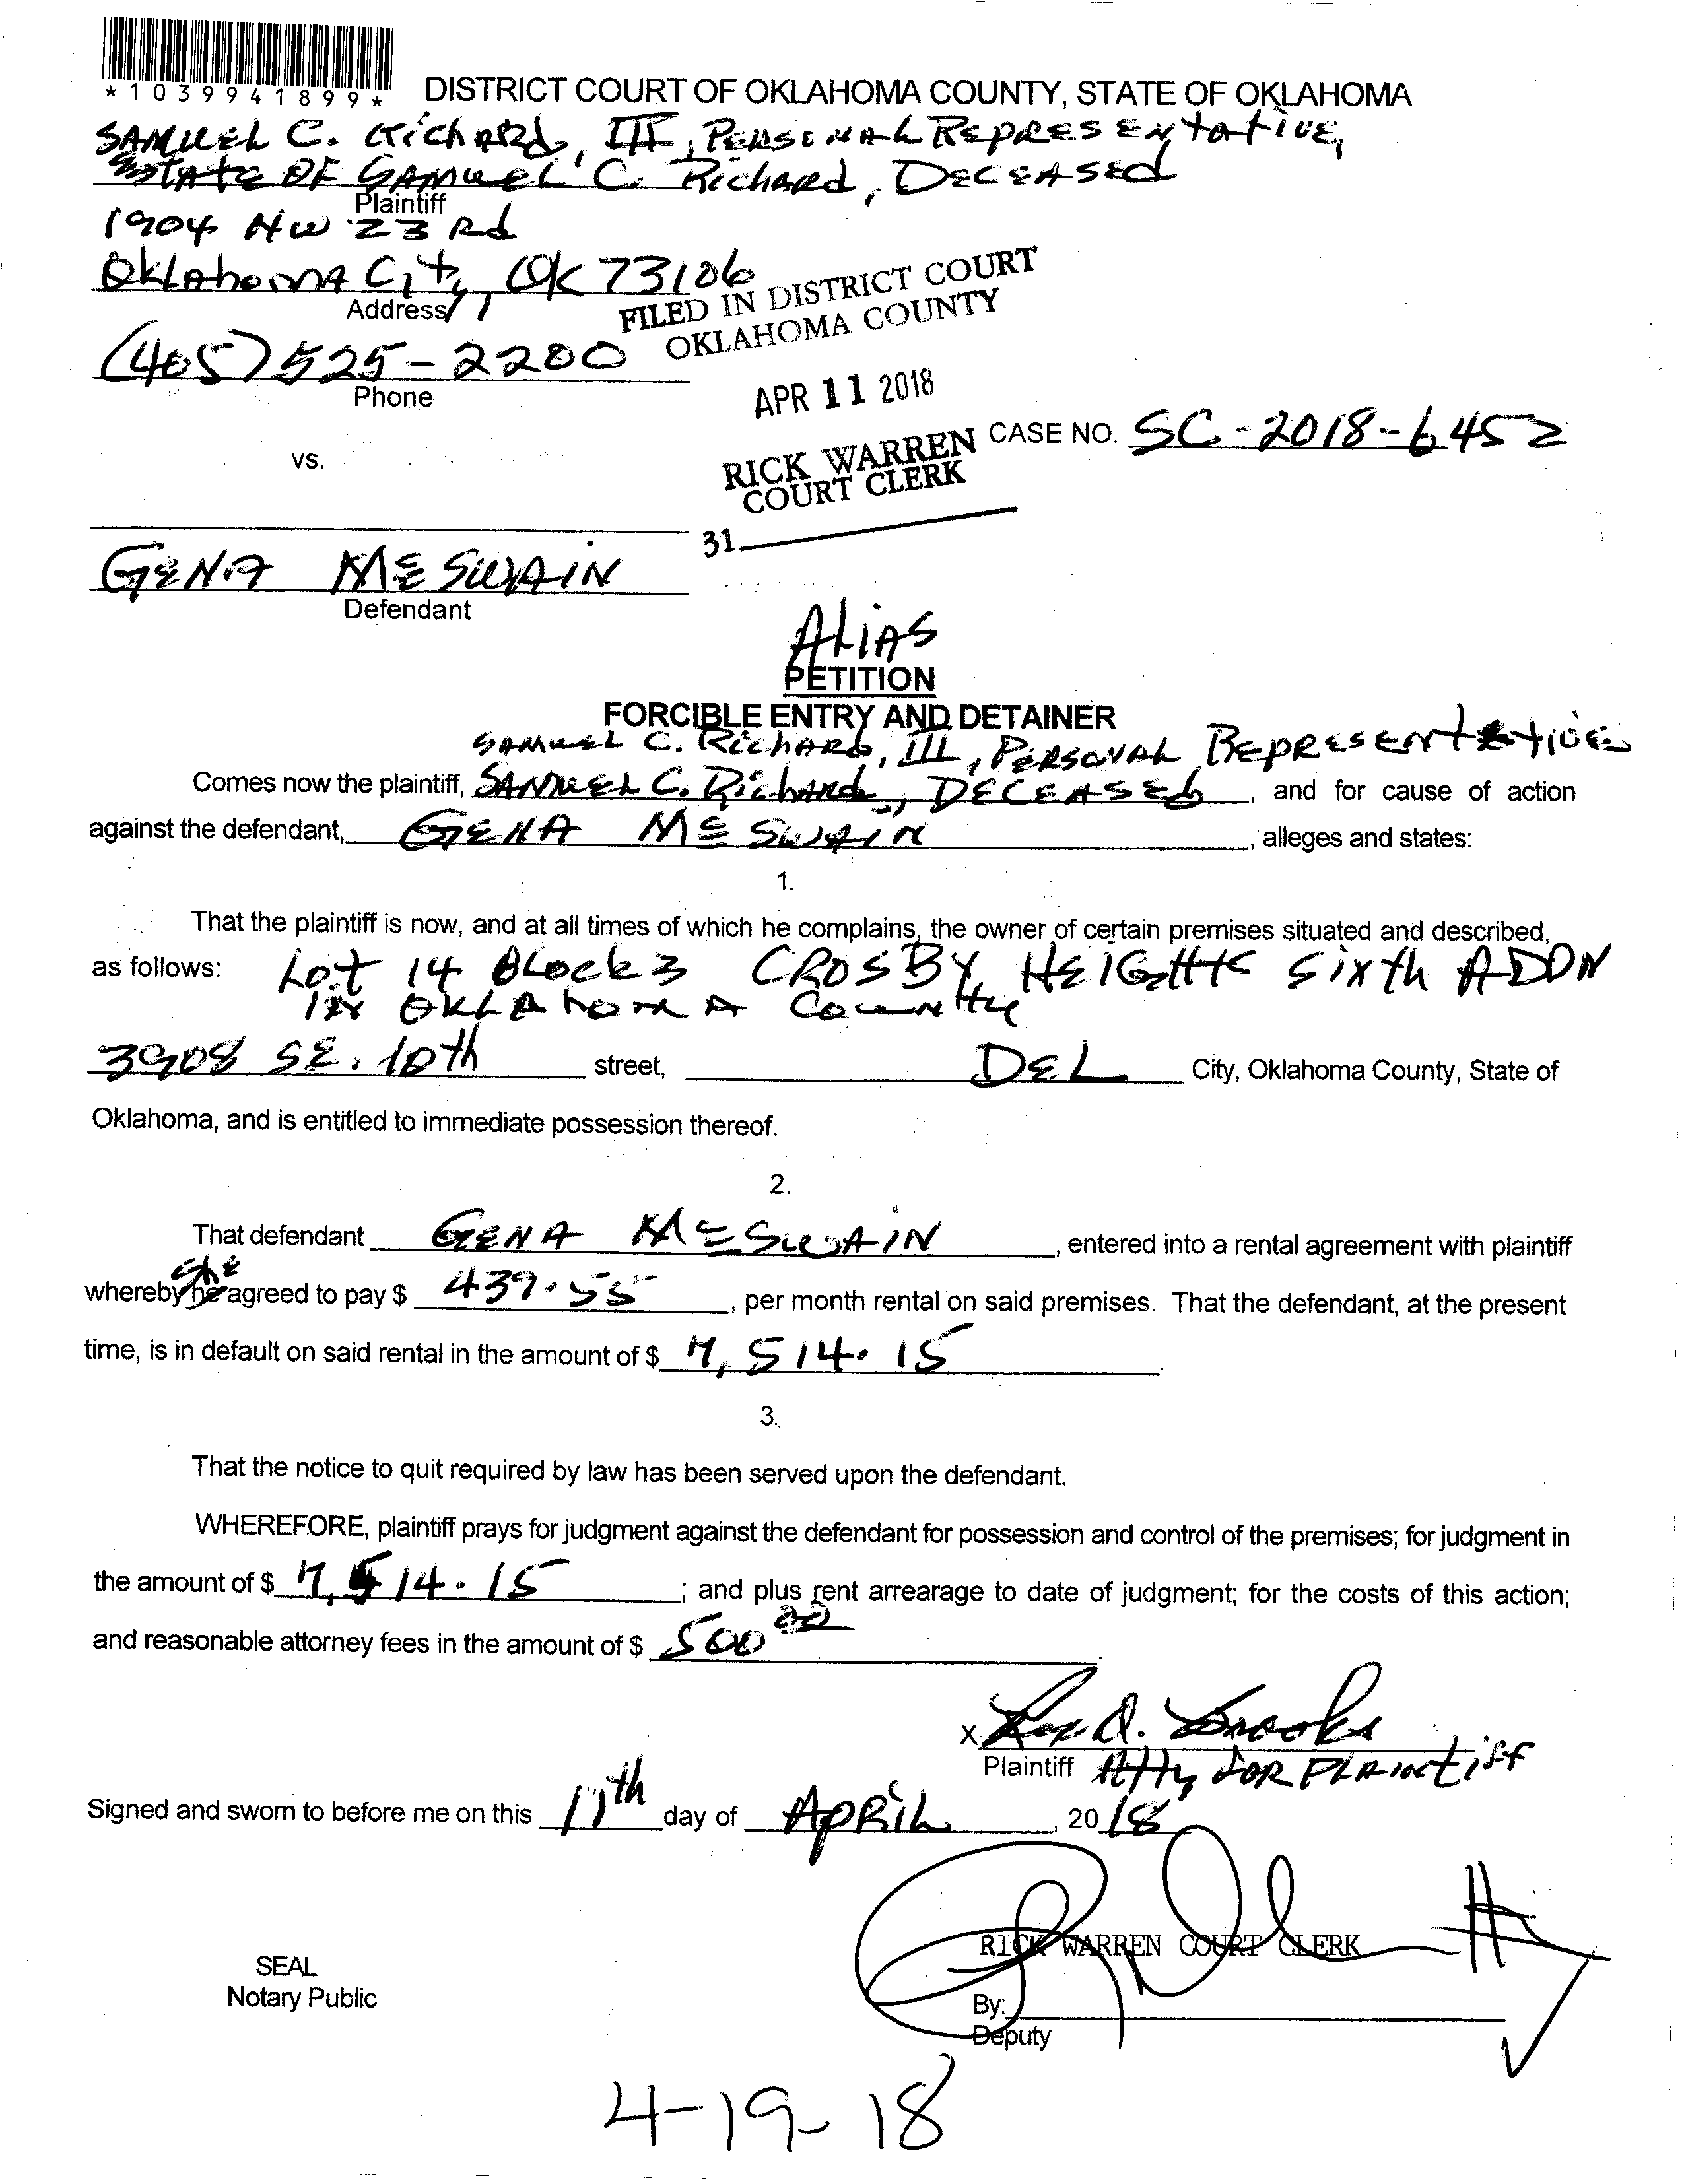 *1039941899*
DISTRICT COURT OF OKLAHOMA COUNTY, STATE OF OKLAHOMA
SAMUEL C. Richard, III, PERSONAL REPRESENTATIVE,
ESTATE OF SAMUEL C. Richard, DECEASED
Plaintiff
1904 NW 23 Rd
Oklahoma City, OK 73106
Address
FILED IN DISTRICT COURT
OKLAHOMA COUNTY
(405) 525-2200
Phone
APR 11 2018
vs.
RICK WARREN
COURT CLERK
CASE NO. SC-2018-6452
31
GENA MESWAIN
Defendant
ALIAS
PETITION
FORCIBLE ENTRY AND DETAINER
SAMUEL C. Richard, III, PERSONAL REPRESENTATIVE
Comes now the plaintiff, SAMUEL C. Richard, DECEASED, and for cause of action
against the defendant, GENA MESWAIN, alleges and states:
1.
That the plaintiff is now, and at all times of which he complains, the owner of certain premises situated and described,
as follows: Lot 14 Block 3 CROSBY HEIGHTS Sixth ADDN
IN OKLAHOMA County
3908 SE. 10th street, DEL City, Oklahoma County, State of
Oklahoma, and is entitled to immediate possession thereof.
2.
That defendant GENA MESWAIN, entered into a rental agreement with plaintiff
she
whereby he agreed to pay $ 439.55, per month rental on said premises. That the defendant, at the present
time, is in default on said rental in the amount of $ 7,514.15.
3.
That the notice to quit required by law has been served upon the defendant.
WHEREFORE, plaintiff prays for judgment against the defendant for possession and control of the premises; for judgment in
the amount of $ 7,514.15; and plus rent arrearage to date of judgment; for the costs of this action;
and reasonable attorney fees in the amount of $ 500 00.
X
Plaintiff Atty FOR PLAINTIFF
Signed and sworn to before me on this 11th day of APRIL, 2018
RICK WARREN COURT CLERK
SEAL
Notary Public
By:
Deputy
4-19-18